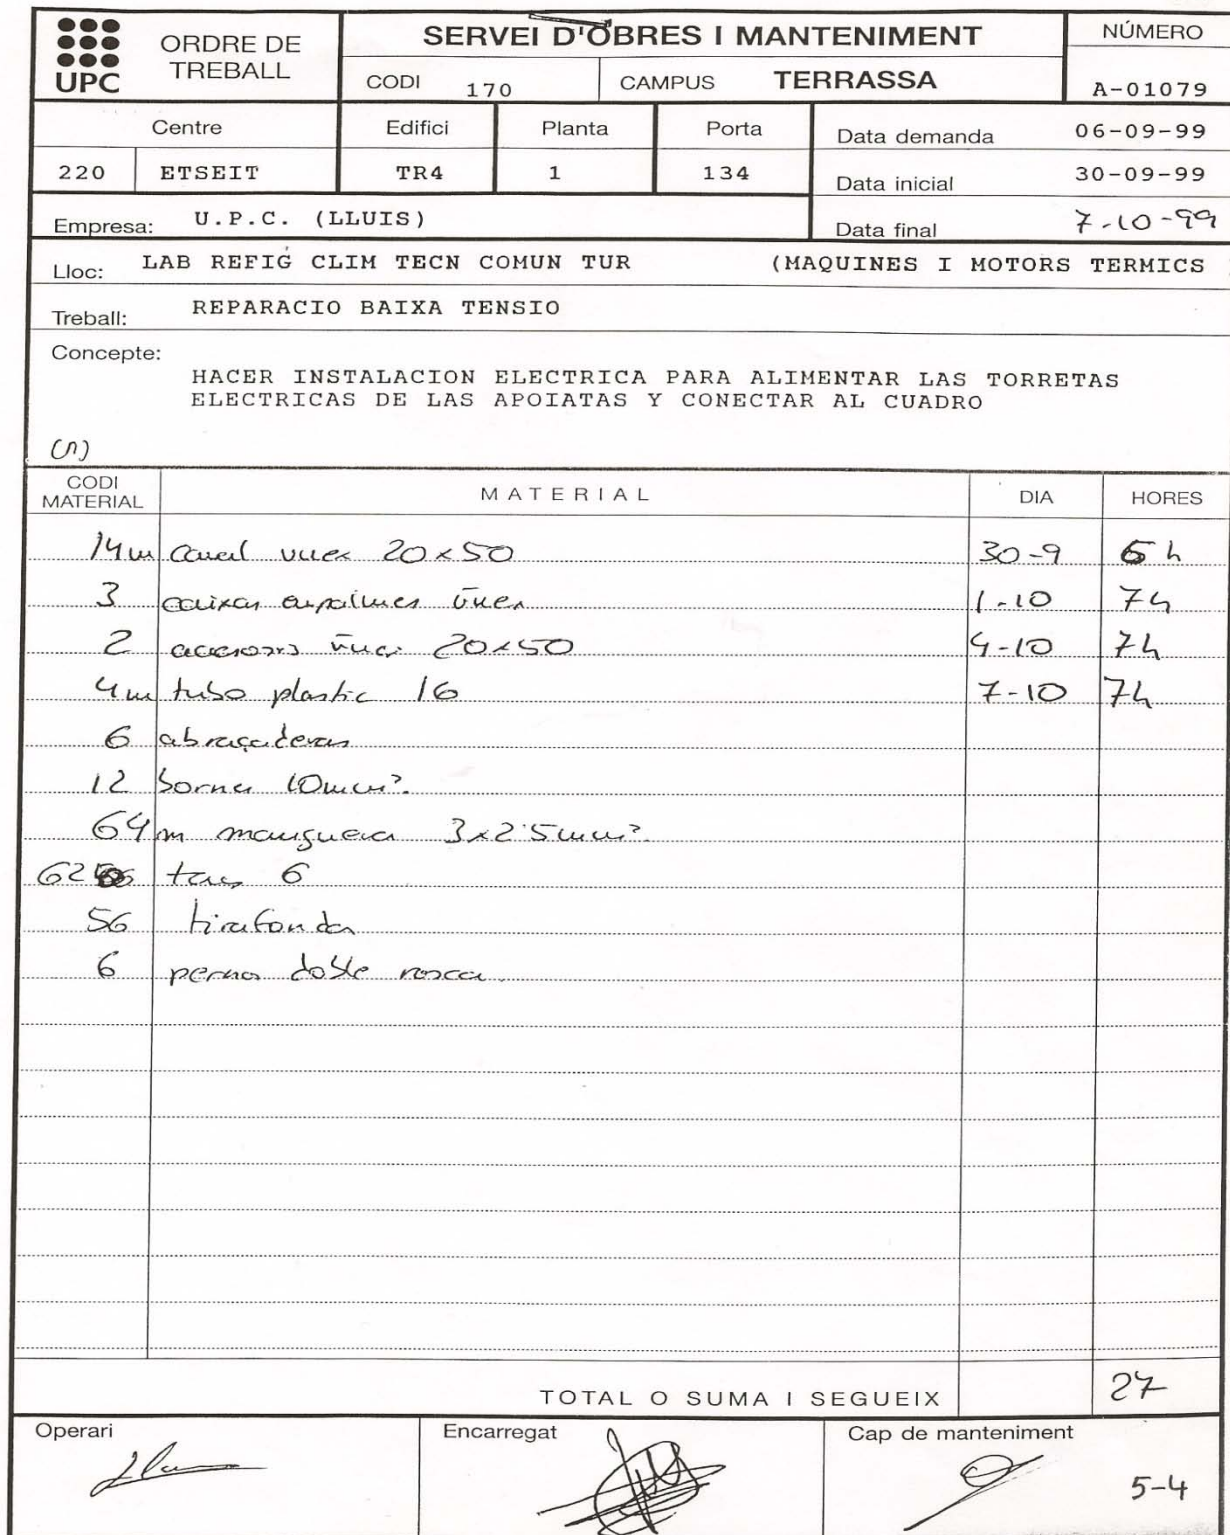 UPC
ORDRE DE TREBALL
SERVEI D'OBRES I MANTENIMENT
NÚMERO
CODI 170 CAMPUS TERRASSA
A-01079
Centre Edifici Planta Porta Data demanda 06-09-99
220 ETSEIT TR4 1 134 Data inicial 30-09-99
Empresa: U.P.C. (LLUIS) Data final 7-10-99
Lloc: LAB REFIG CLIM TECN COMUN TUR (MAQUINES I MOTORS TERMICS
Treball: REPARACIO BAIXA TENSIO
Concepte:
HACER INSTALACION ELECTRICA PARA ALIMENTAR LAS TORRETAS
ELECTRICAS DE LAS APOIATAS Y CONECTAR AL CUADRO
CODI MATERIAL MATERIAL DIA HORES
14m canal unex 20x50 30-9 6 h
3 caixas empalmes unex 1-10 7h
2 unex 20x50 4-10 7h
4m tubo plastic 16 7-10 7h
6 abraçaderas
12 borna 10mm².
64 m manguera 3x2'5mm².
62 tacs 6
56 tirafondos
6 perno doble rosca
TOTAL O SUMA I SEGUEIX 27
Operari Encarregat Cap de manteniment
5-4